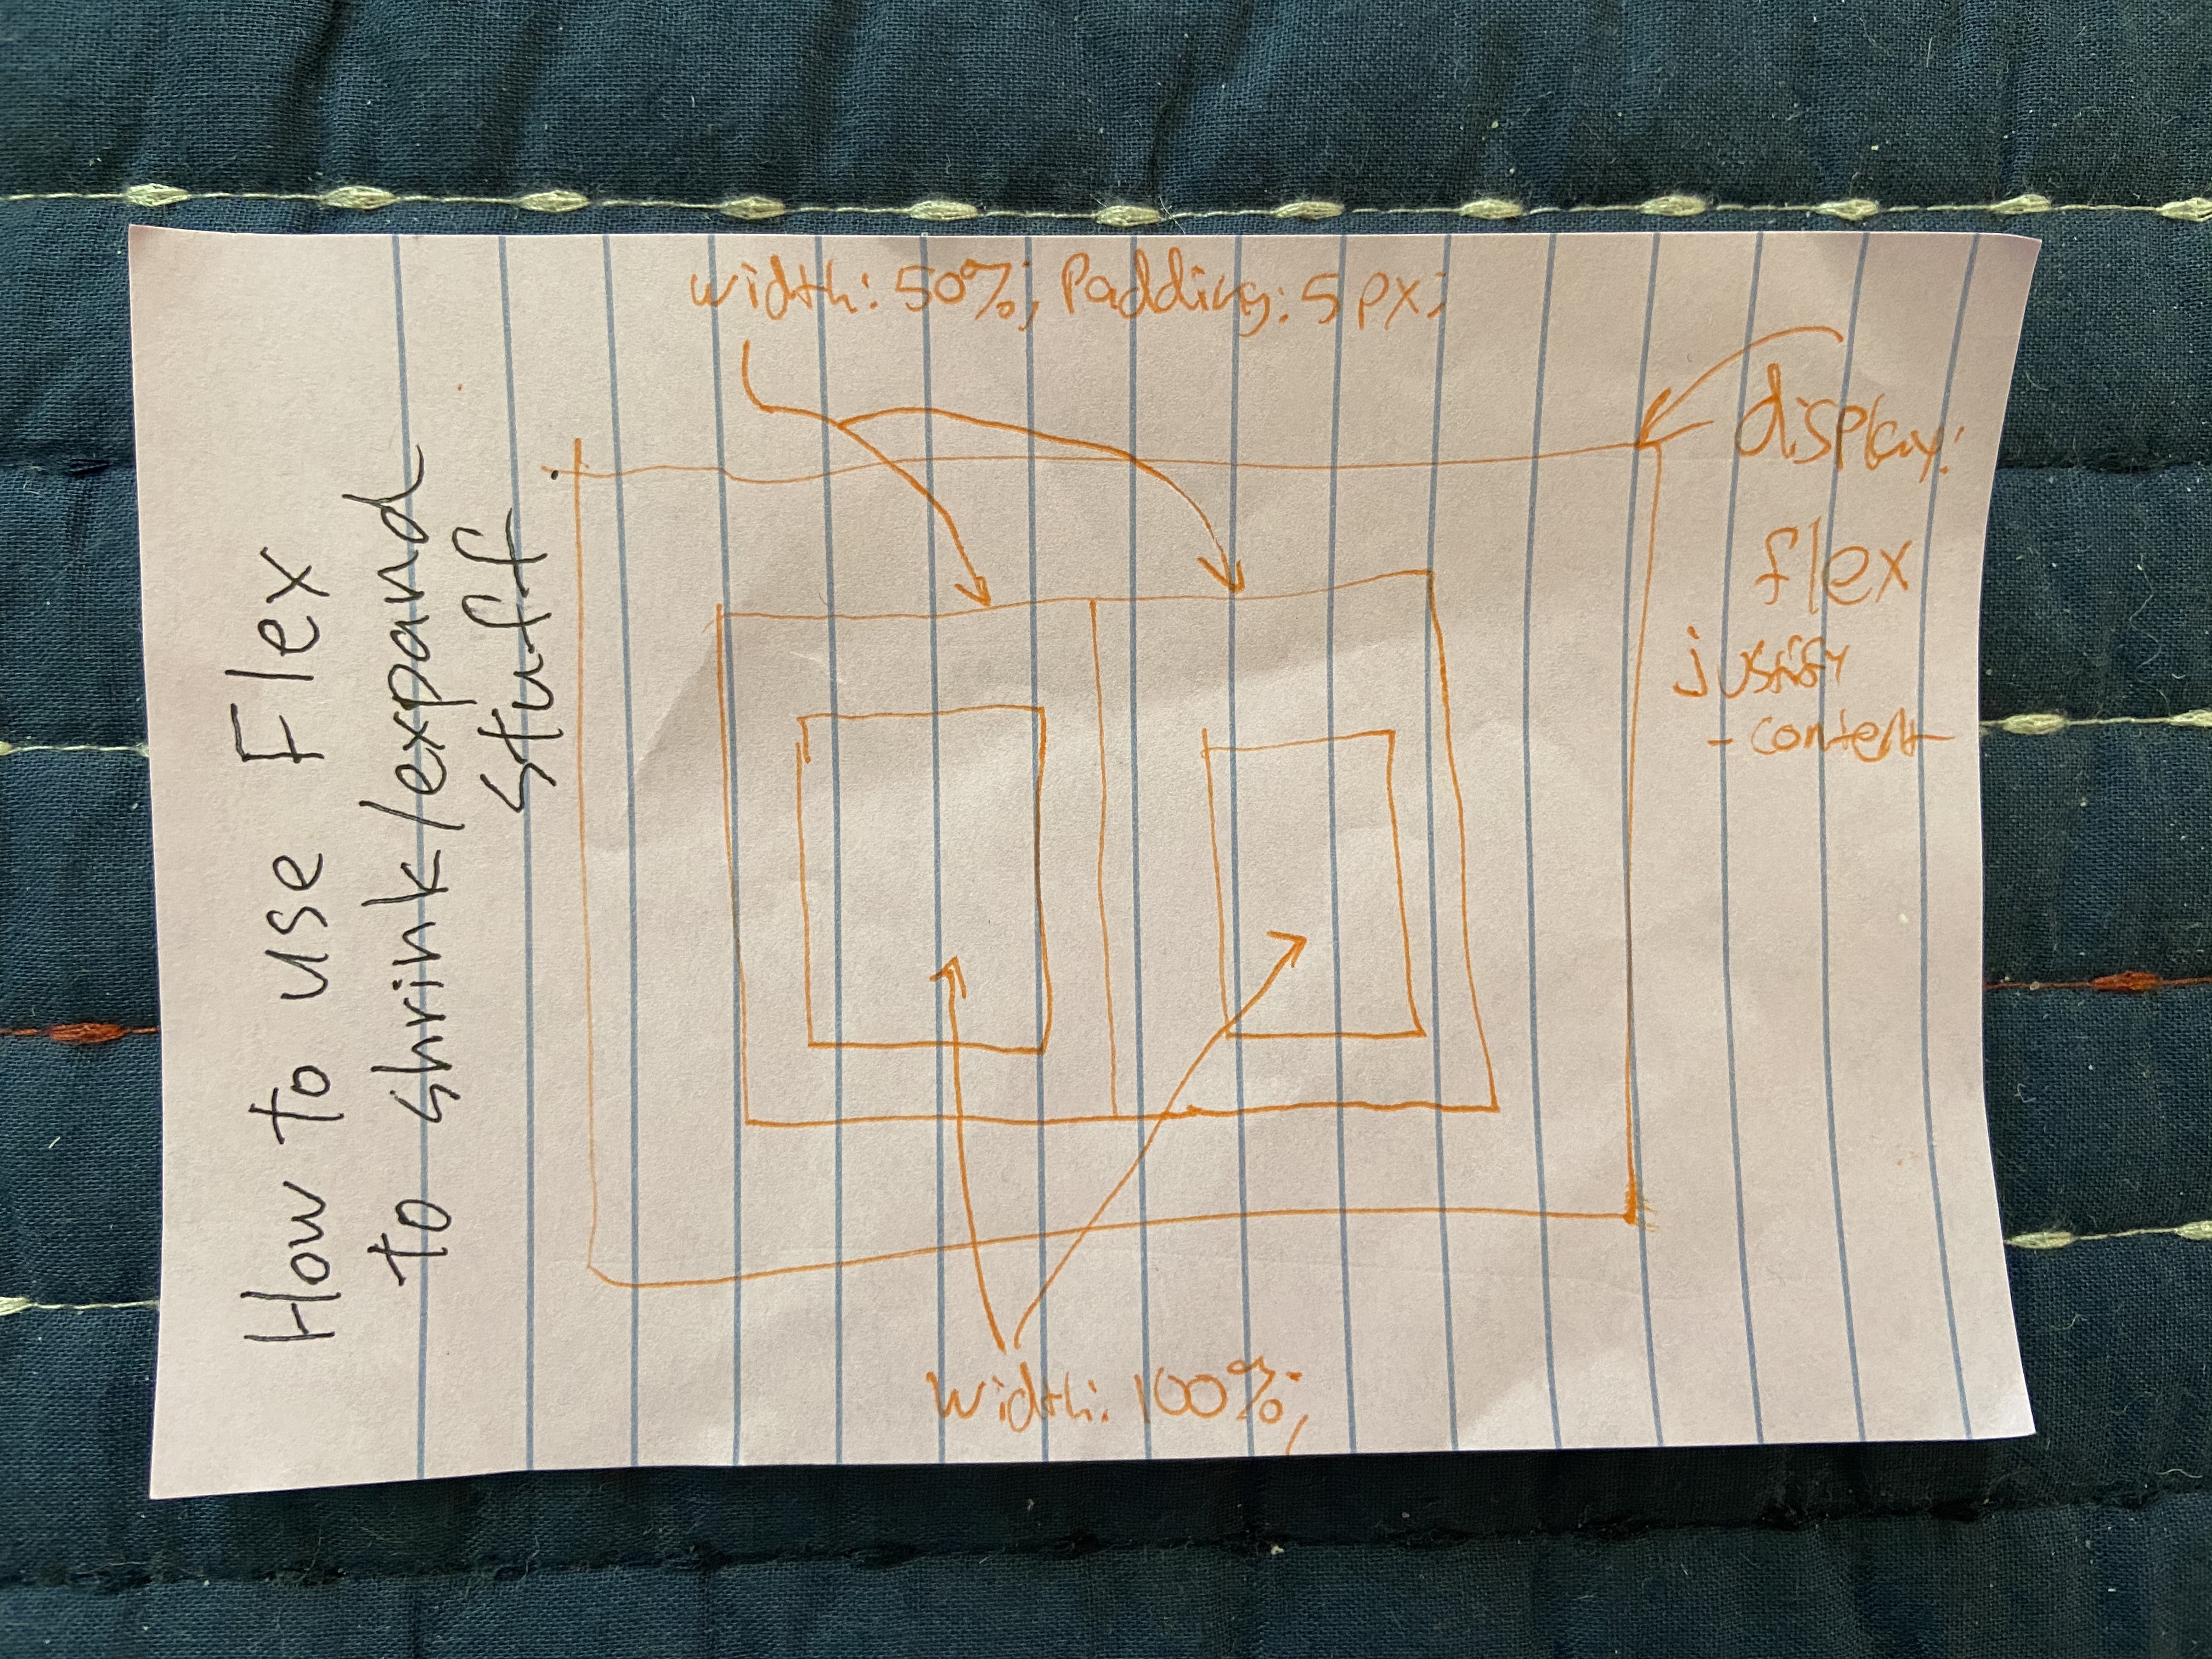 How to use Flex
to shrink/expand
stuff
width: 50%; Padding: 5px;
display:
flex
justify
-content
width: 100%;